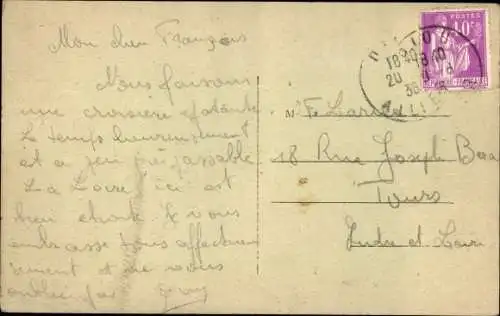 Mon cher François
Nous faisons
une croisière épatante
Le temps heureusement
est à peu près passable
La Loire ici est
bien chaude. Je vous
embrasse tous affectueu
sement et ne vous
oublie pas
POSTES
40c
18 40
20
36
M. F.
18 Rue Joseph
Tours
Indre et Loire